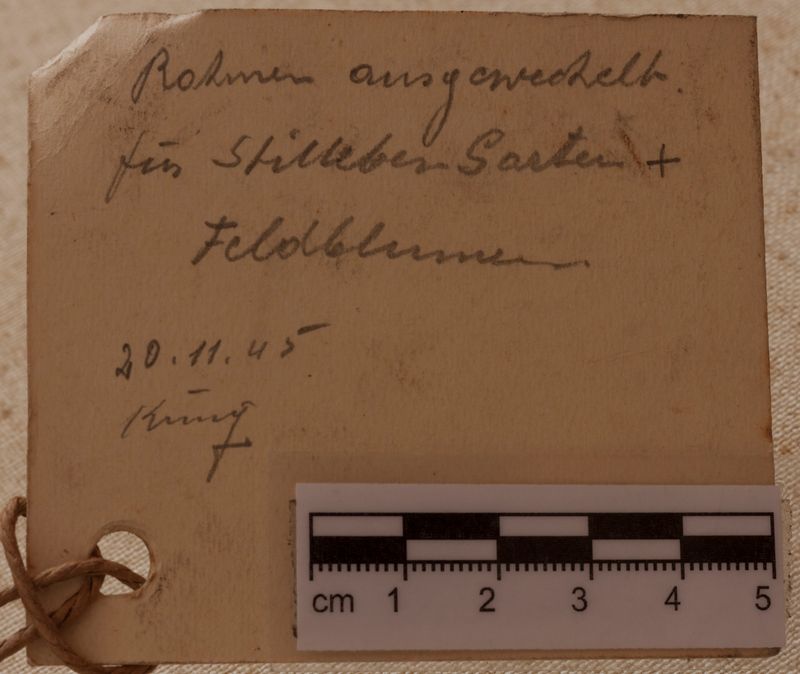 Rahmen ausgewechselt.
für Stilleben Garten +
Feldblumen
20.11.45
Küng
cm 1 2 3 4 5